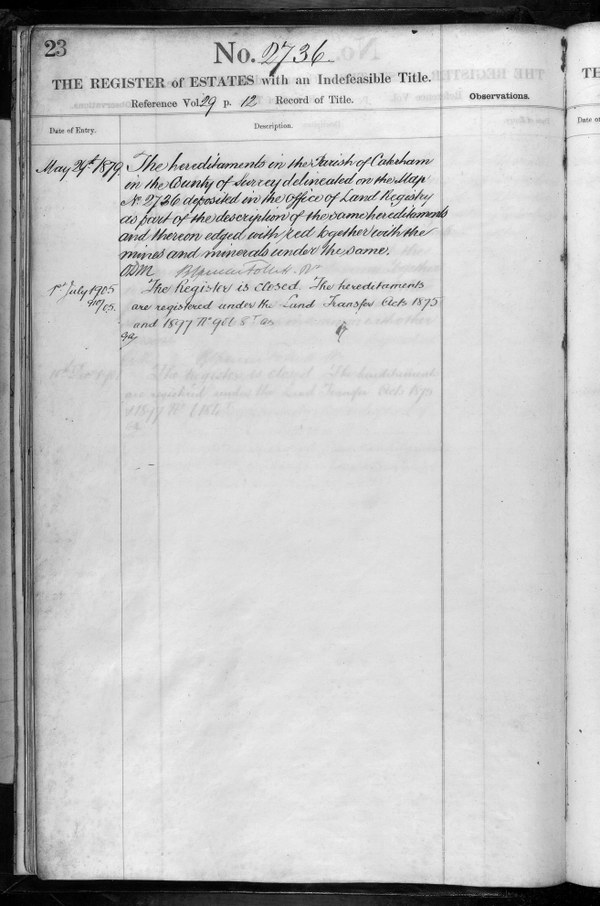 23
No. 2736
THE REGISTER of ESTATES with an Indefeasible Title.
Reference Vol 29 p. 12 Record of Title.
Observations.
Date of Entry.
Description.
May 29th 1879
The hereditaments in the Parish of Caterham
in the County of Surrey delineated on the Map
No 2736 deposited in the office of Land Registry
as part of the description of the same hereditaments
and thereon edged with red together with the
mines and minerals under the same.
1st July 1905
The Register is closed. The hereditaments
are registered under the Land Transfer Acts 1875
and 1897 No
TH
Date of